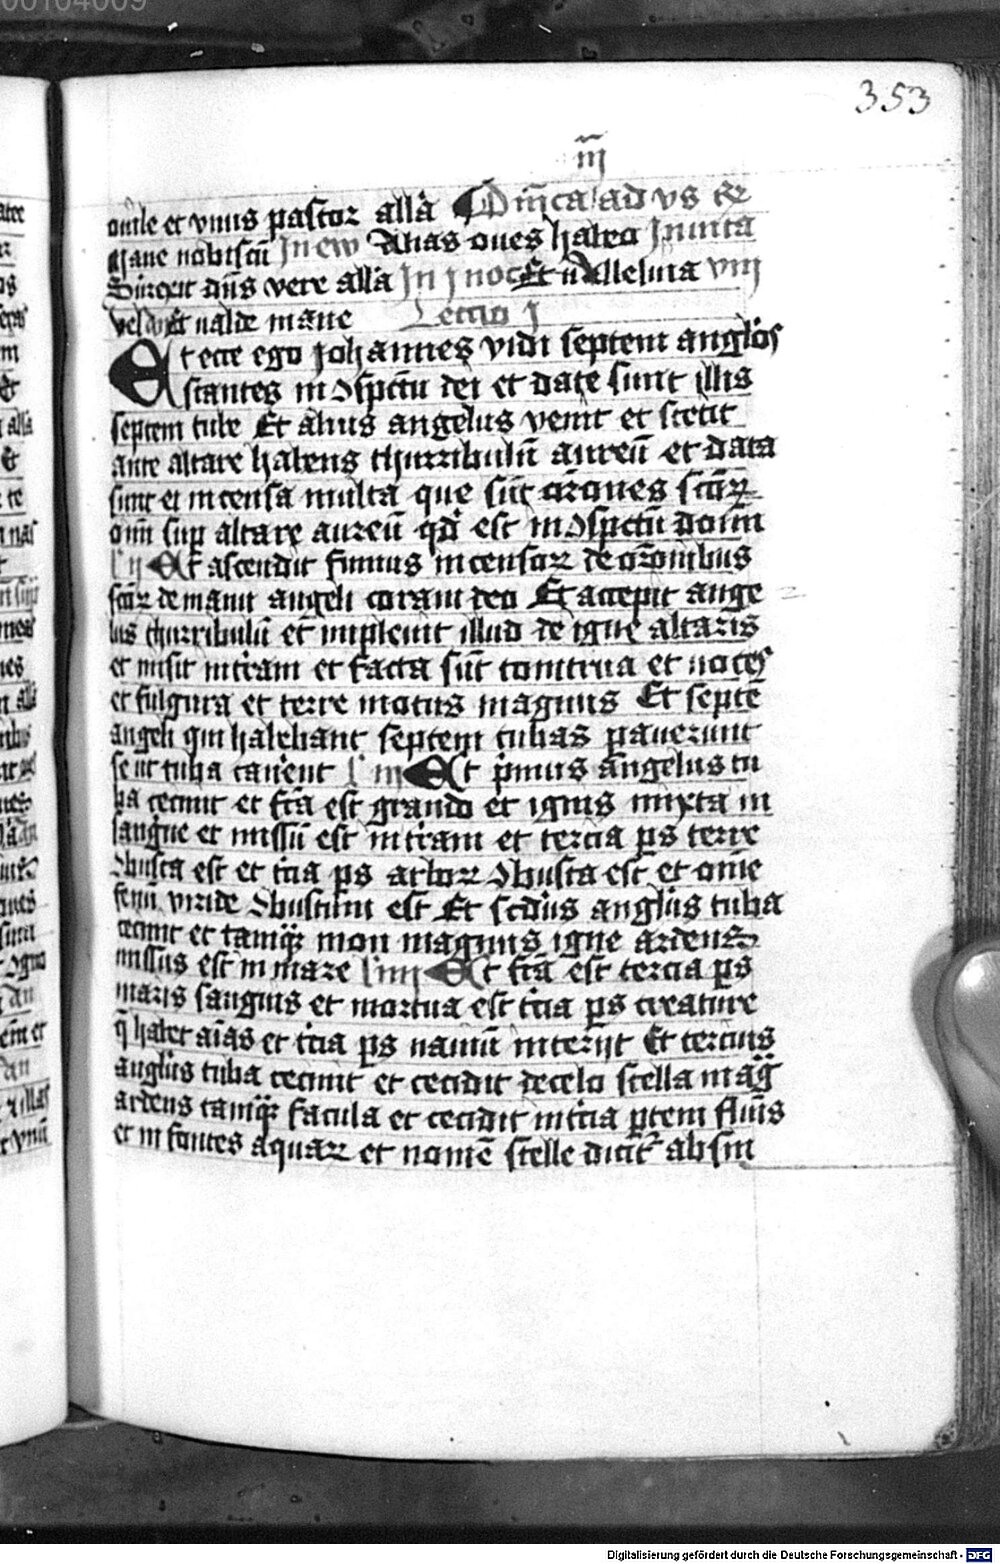 00104009
353
iij
ouile et vnus pastor allã Dñica ad vs Rꝫ
Mane nobiscũ In ew Alias oues habeo Inuita
Surrexit dñs vere allã In j noc Et Alleluia viij
valde mane Lectio j
Et ecce ego Johannes vidi septem anglos
stantes in ɔspctũ dei et date sunt illis
septem tube Et alius angelus venit et stetit
ante altare habens thurribulũ aureũ et data
sunt ei incensa multa que sũt orões scõrꝝ
oĩm sup altare aureũ qđ est in ɔspctũ domĩ
l ij Et ascendit fumus incensorꝝ de orõnibus
scõrꝝ de manu angeli coram deo Et accepit ange
lus thurribulũ et impleuit illud de igne altaris
et misit in tr̃am et facta sũt tonitrua et uoces
et fulgura et terre motus magnus Et septẽ
angeli qui habebant septem tubas pauerunt
se ut tuba canerent l iij Et p̃mus angelus tu
ba cecinit et fc̃a est grando et ignis mixta in
sangꝰne et missũ est in tr̃am et tercia ps terre
ɔbusta est et tc̃ia ps arborꝝ ɔbusta est et om̃e
fenũ viride ɔbustum est Et scdus anglus tuba
cecinit et tamqꝫ mon magnus igne ardens
missus est in mare l iiij Et fc̃a est tercia ps
maris sanguis et mortua est tc̃ia ps creature
q̃ habet aĩas et tc̃ia ps nauiũ interijt Et tercius
anglus tuba cecinit et cecidit de celo stella mag̃
ardens tamqꝫ facula et cecidit in tc̃ia ptem fluĩs
et in fontes aquarꝝ et nomẽ stelle dicit᷑ absin
Digitalisierung gefördert durch die Deutsche Forschungsgemeinschaft - DFG